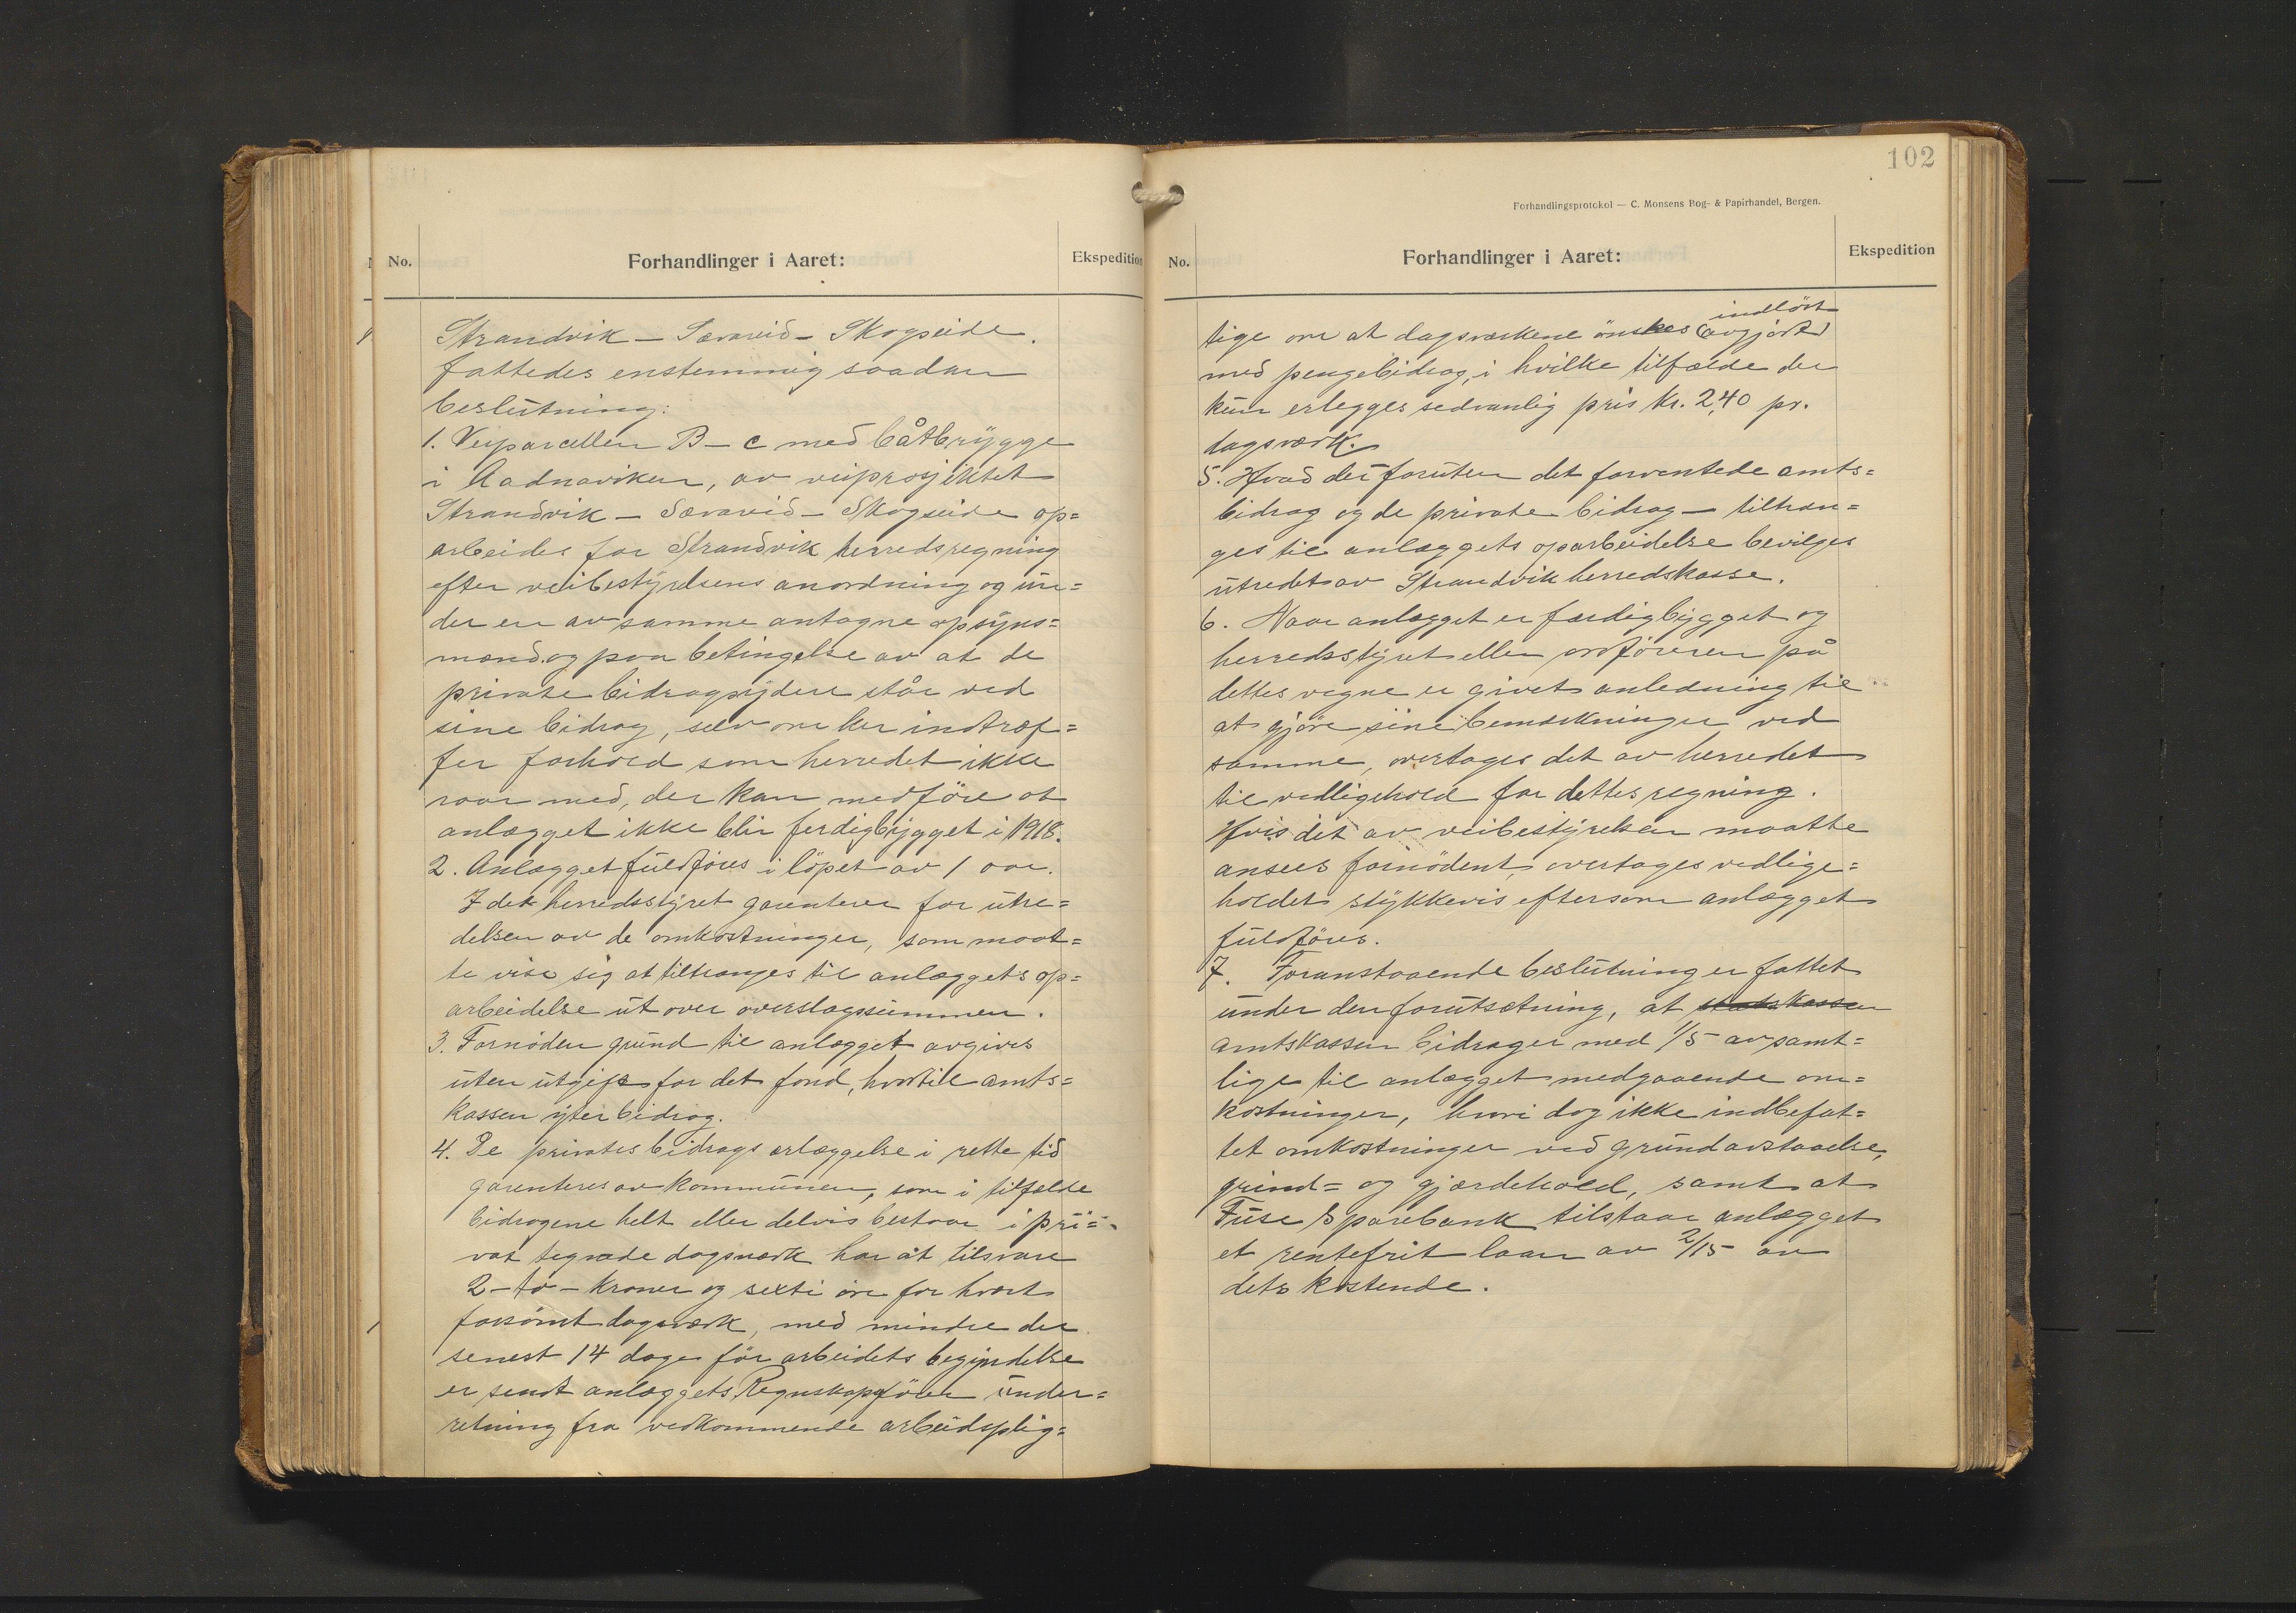 No.
Forhandlinger i Aaret:
Ekspedition
Strandvik – Sævareid – Skogseide.
fattedes enstemmig saadan
beslutning:
1. Veiparcellen B – c med båtbrygge
i Aadnaviken, av veiprosjektet
Strandvik – Sævareid – Skogseide op=
arbeides for Strandvik herredsregning
efter veibestyrelsens anordning og un=
der en av samme antagne opsyns=
mand og paa betingelse av at de
private bidragsydere står ved
sine bidrag, selv om her indtræf=
fer forhold som herredet ikke
raar med, der kan medföre at
anlægget ikke blir ferdigbygget i 1918.
2. Anlægget fuldföres i löpet av 1 aar.
I det herredsstyret garenterer for utre=
delsen av de omkostninger, som maat=
te vise sig at tiltrænges til anlæggets op=
arbeidelse ut over overslagssummen.
3. Fornöden grund til anlægget avgives
uten utgift for det fond, hvortil amts=
kassen yter bidrag.
4. De privates bidrags erlæggelse i rette tid
garenteres av kommunen, som i tilfælde
bidragene helt eller delvis bestaar i pri=
vat tegnede dagsværk har at tilsvare
2 – to – kroner og seksti öre for hvert
forsömt dagsværk, med mindre der
senest 14 dage för arbeidets begyndelse
er sendt anlæggets Regnskapsförer under=
retning fra vedkommende arbeidsplig=
102
Forhandlingsprotokol — C. Monsens Bog- & Papirhandel, Bergen.
No.
Forhandlinger i Aaret:
Ekspedition
indlöst
tige om at dagsverkene önskes (avgjort)
med pengebidrag, i hvilke tilfælde der
kun erlegges sedvanlig pris kr. 2,40 pr.
dagsværk.
5. Hvad der foruten det forventede amts=
bidrag og de private bidrag – tiltræn=
ges til anlæggets oparbeidelse bevilges
utredet av Strandvik herredskasse.
6. Naar anlægget er færdigbygget og
herredsstyret eller ordföreren på
dettes vegne er givet anledning til
at gjöre sine bemerkninger ved
samme, overtages det av herredet
til vedligehold for dettes regning.
Hvis det av veibestyrelsen maatte
ansees fornödent, overtages vedlige=
holdet stykkevis eftersom anlægget
fuldföres.
7. Foranstaaende beslutning er fattet
under den forutsætning, at statskassen
amtskassen bidrager med 1/5 av samt=
lige til anlægget medgaaende om=
kostninger, hvori dog ikke indbefat=
tet omkostninger ved grundavstaaelse,
grind= og gjærdehold, samt at
Fuse Sparebank tilstaar anlægget
et rentefrit laan av 2/15 av
dets kostende.